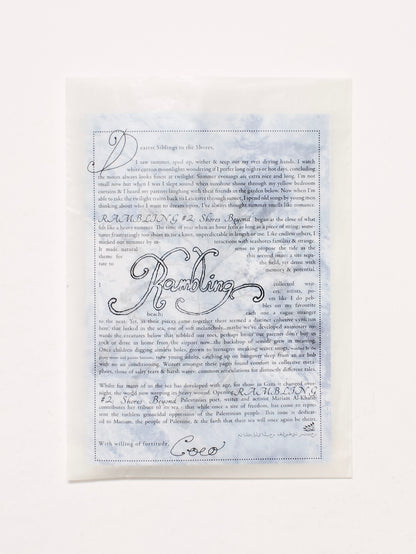 Dearest Siblings to the Shores,
I saw summer, spool up, wither & seep out my ever drying hands. I watch
white curtain moonlights wondering if I prefer long nights or hot days, concluding
the moon always looks finest at twilight. Summer evenings are extra nice and long. I'm not
small now but when I was I slept sound when sunshine shone through my yellow bedroom
curtains & I heard my parents laughing with their friends in the garden below. Now when I'm able
to take the twilight trains back to Leicester through summer, I spend old songs by young men
thinking about who I want to dream upon, I've always thought summer smells like romance.
RAMBLING #2 Shores Beyond began at the close of what
felt like a heavy summer. The time of year when an hour feels as long as a piece of string; some-
times frustratingly too short to tie a knot, unpredictable in length or use. Like endless others, I
mucked out summer by in- teractions with seahorses familiar & strange.
It made natural sense to propose the tide as the
theme for this second issue: a site sepa-
rate to the field, yet dense with
memory & potential.
Rambling
I collected writ-
ers, artists, po-
ets like I do peb-
bles on my favourite
beach; each one a vague stranger
to the next. Yet, as their pieces came together there seemed a distinct cohesive cynicism
here, that lurked in the sea, one of soft melancholy, maybe we've developed animosity to-
wards the creatures below that nibbled our toes, perhaps
Once children digging eroded holes, grown to teenagers sneaking secret songs,
now young adults, catching up on hungover sleep from an air bnb
with no air conditioning. Waters amongst these pages found comfort in collective meta-
phors, those of salty tears & harsh waves: common articulations for distinctly different tales.
Whilst for many of us the sea has developed with age, for those in Gaza it changed over-
night, the world now weeping its heavy wound. Opening RAMBLING
#2 Shores Beyond Palestinian poet, writer and activist Mariam Al-Khatib
contributes her tribute to its sea - that while once a site of freedom, has come to repre-
sent the restless genocidal oppression of the Palestinian people. This issue is dedicat-
ed to Mariam, the people of Palestine, & the faith that their sea will once again be theirs
With willing of fortitude,
Coco